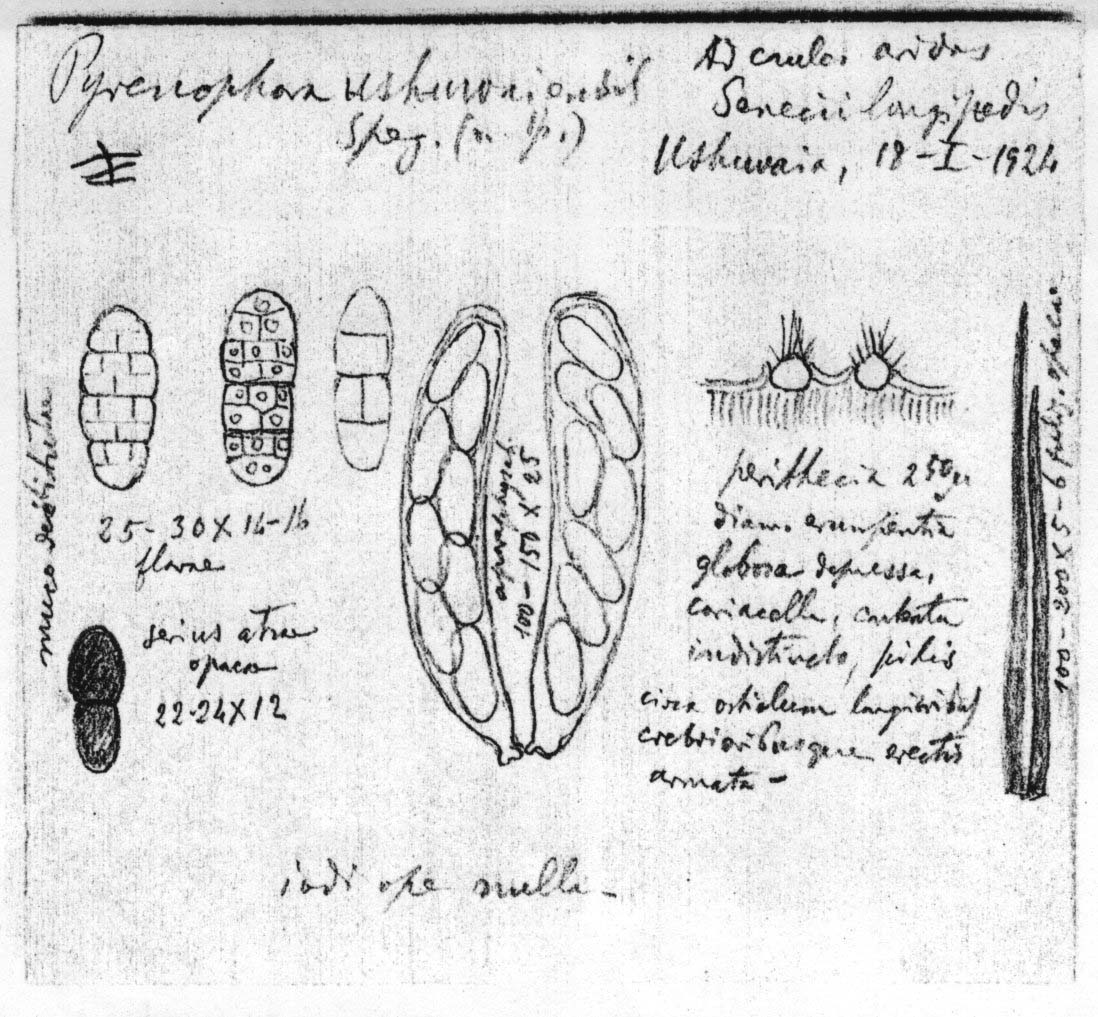 Pyrenophora ushuwaiensis
Speg. (n. sp.)
Ad caules aridos
Senecii longipedis
Ushuwaia, 18-I-1924
muco destitutae
25-30X14-16
flavae
serius atrae
opacae
22-24X12
paraphysati
100-150 X 25
perithecia 250µ
diam. erumpentia
globosa depressa,
coriacella, contextu
indistincto, pilis
circa ostiolum longioribus
crebrioribusque erectis
armata -
100-200X5-6 fulig. opaca
iodi ope nulla -